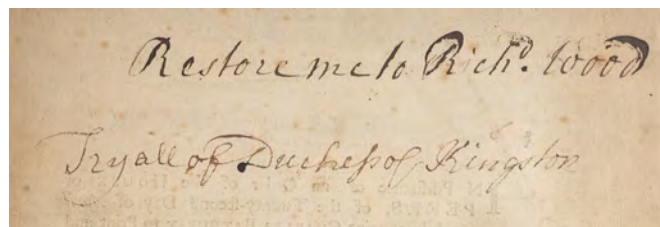 Restore me to Rich.d Wood
Tryall of Duchess of Kingston